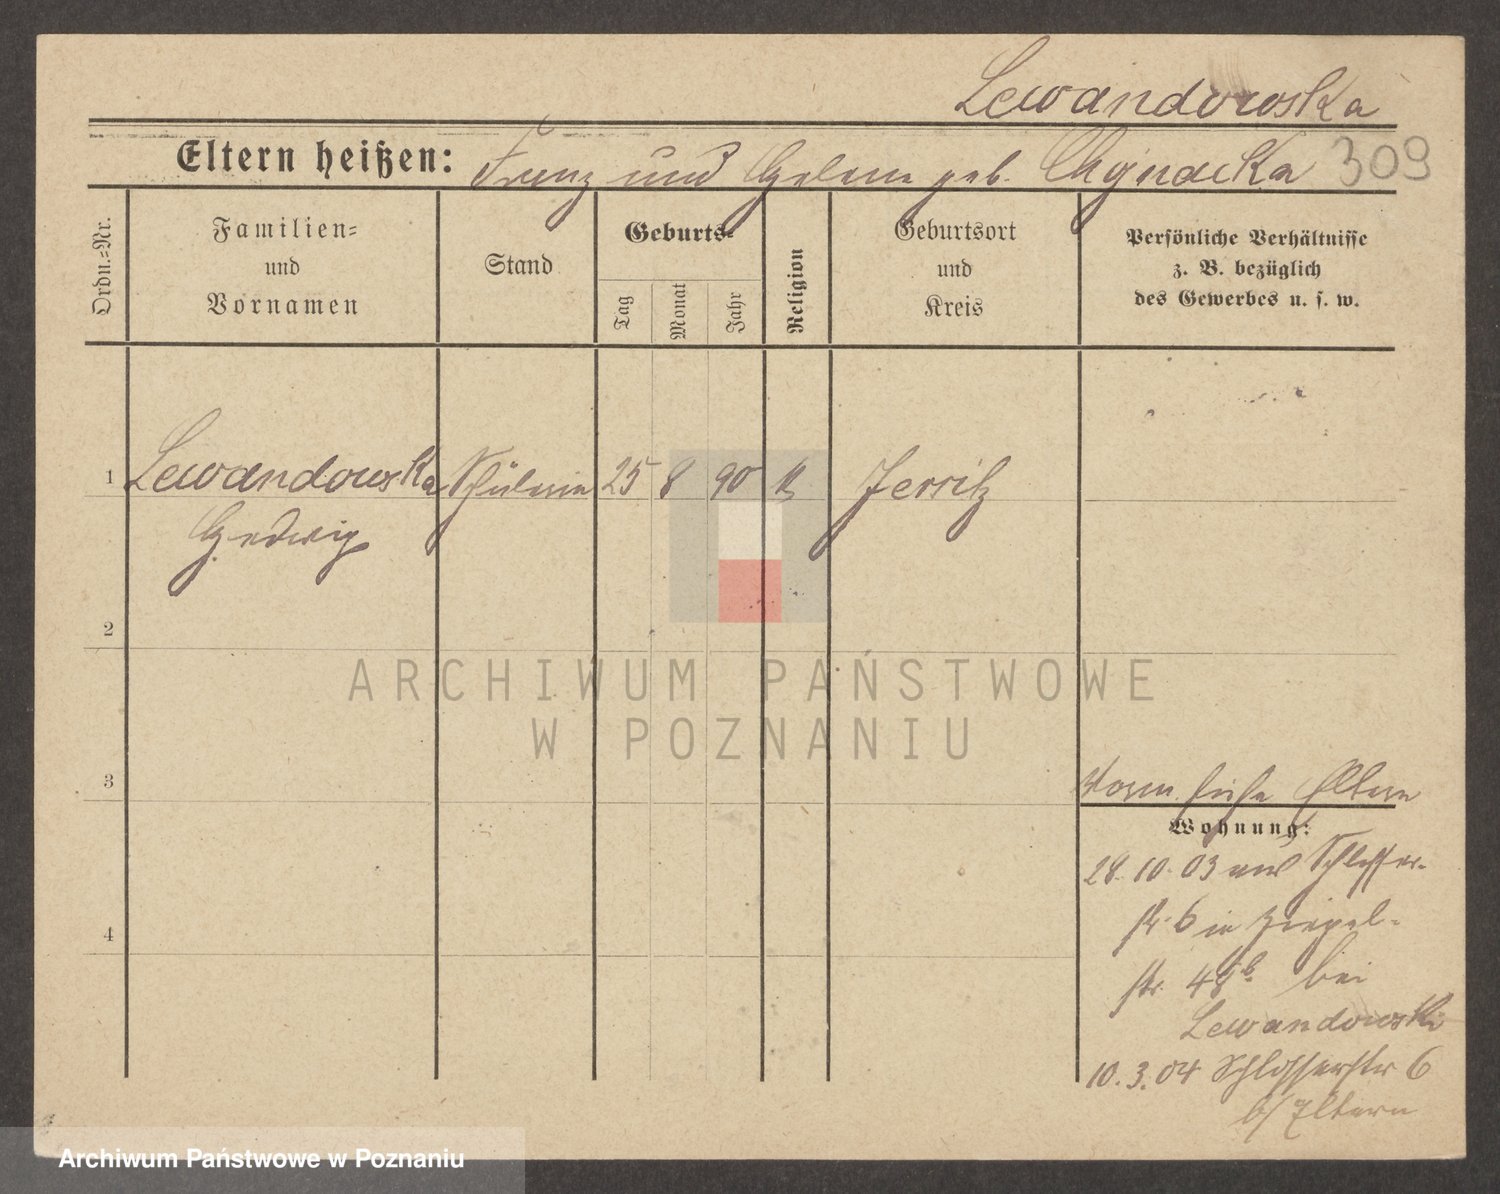 Lewandowska
Eltern heißen: Franz und Helene geb. Chojnacka 309
Ordn.-Nr.
Familien-
und
Vornamen
Stand
Geburts-
Tag
Monat
Jahr
Religion
Geburtsort
und
Kreis
Persönliche Verhältnisse
z. B. bezüglich
des Gewerbes u. s. w.
1 Lewandowska Schülerin 25 8 90 k Jersitz
Hedwig
2
ARCHIWUM PAŃSTWOWE
W POZNANIU
3
Vorm. siehe Eltern
Wohnung:
28. 10. 03 von Schlosser-
str. 6 in Ziegel-
4
str. 48 b. bei
Lewandowski
10. 3. 04 Schlosserstr 6
b/ Eltern
Archiwum Państwowe w Poznaniu